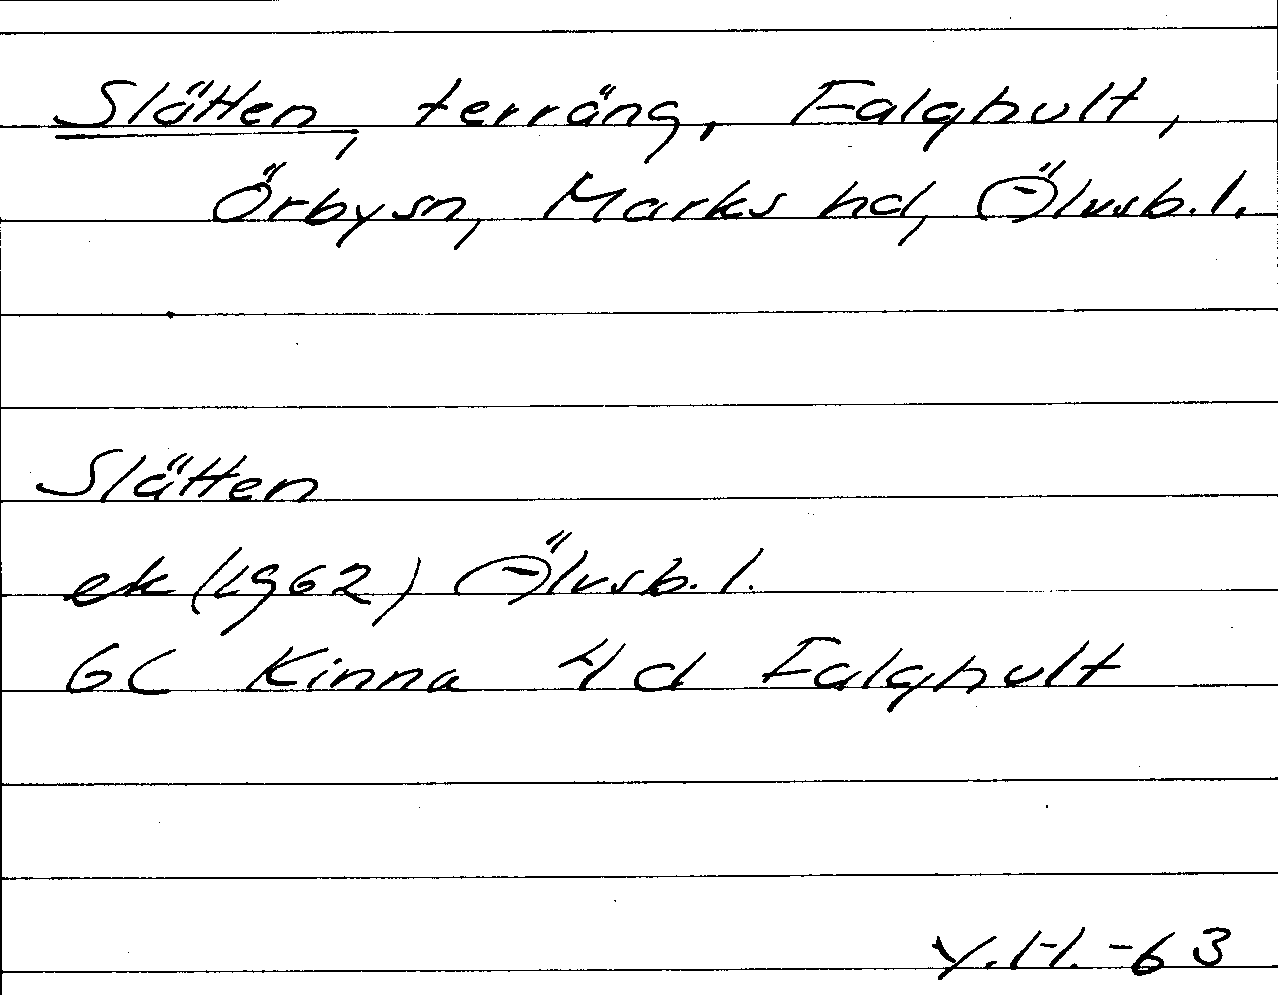 Slätten, terräng, Falghult,
Örby sn, Marks hd, Älvsb. l.
Slätten
ek (1962) Älvsb. l.
6C Kinna 4 d Falghult
Y.H. -63